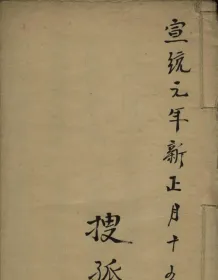 宣統元年新正月十五
搜孤